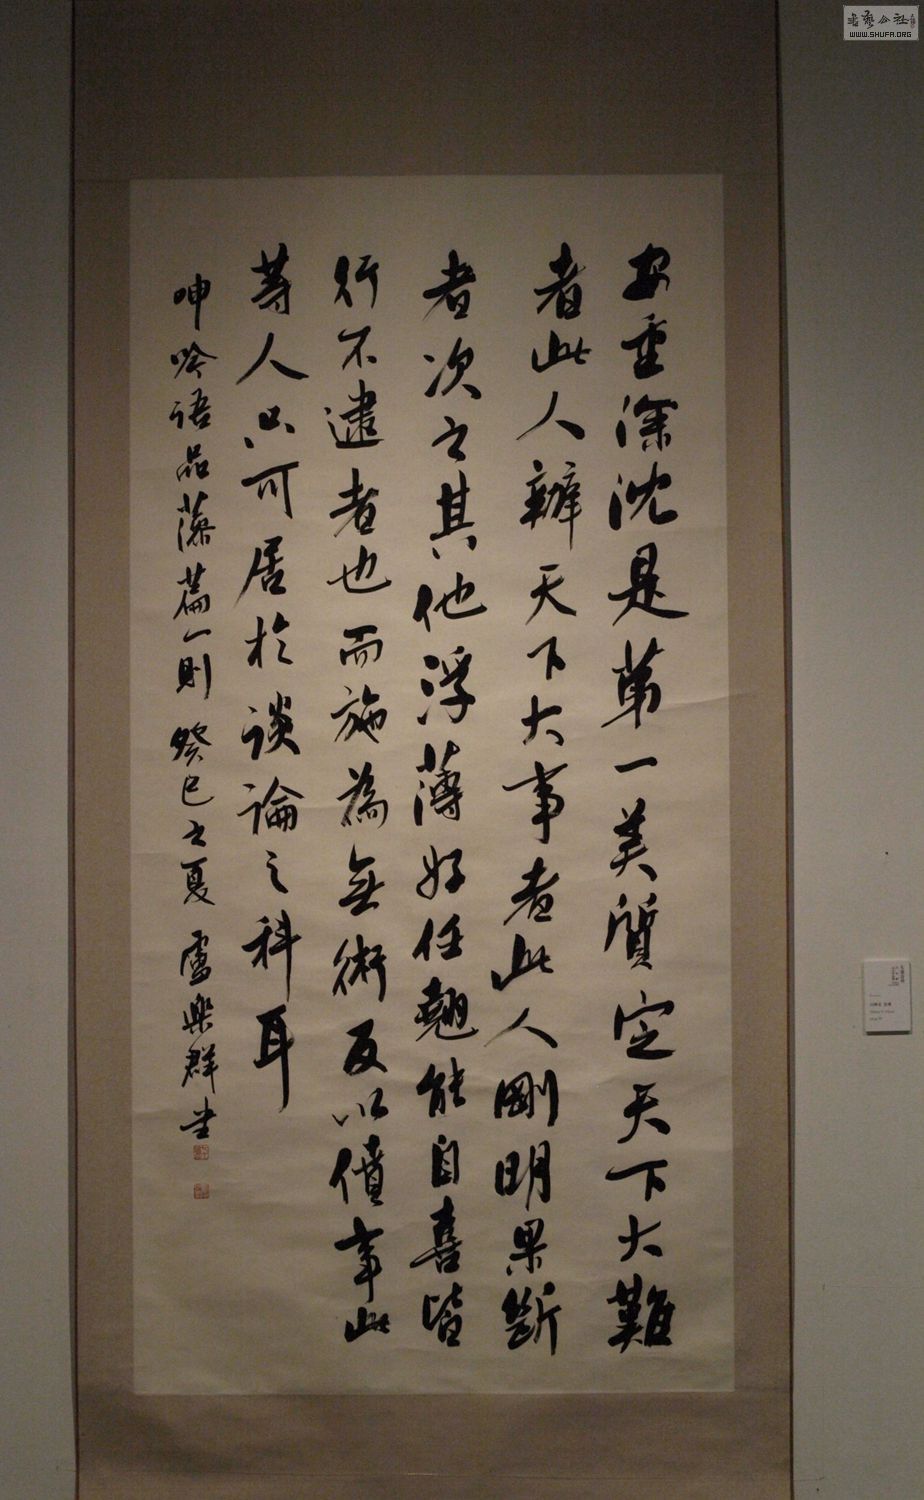 安重深沈是第一美質定天下大難
者此人辦天下大事者此人剛明果斷
者次之其他浮薄好任翹能自喜皆
行不逮者也而施為無術反以僨事此
等人只可居於談論之科耳
呻吟语品藻篇一則 癸巳之夏 盧樂群书
WWW.SHUFA.ORG